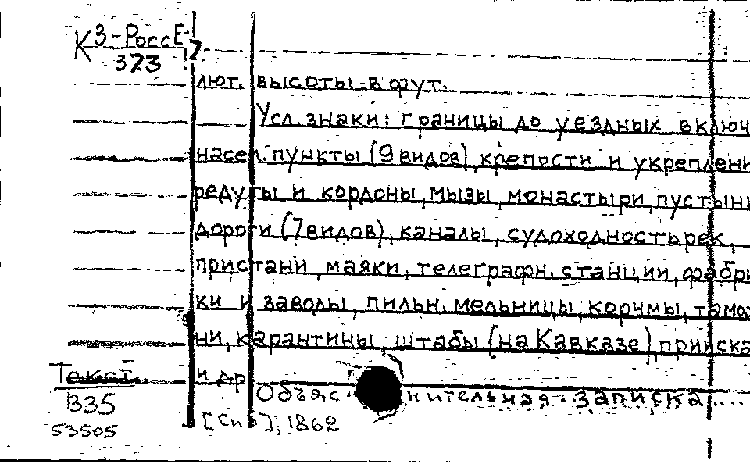 К3-РоссЕ-
7
373
лют. высоты в фут.
Усл. знаки: границы до уездных включ
насел. пункты (9 видов), крепости и укреплени
редуты и кордоны, мызы, монастыри, пустын
дороги (7 видов), каналы, судоходность рек,
пристани, маяки, телеграфн. станции, фабри
ки и заводы, пильн. мельницы, корчмы, тамо
ни, карантины, штабы (на Кавказе), прииска
и др
Текст
Объяснительная записка...
В35
53505
[Спб], 1862